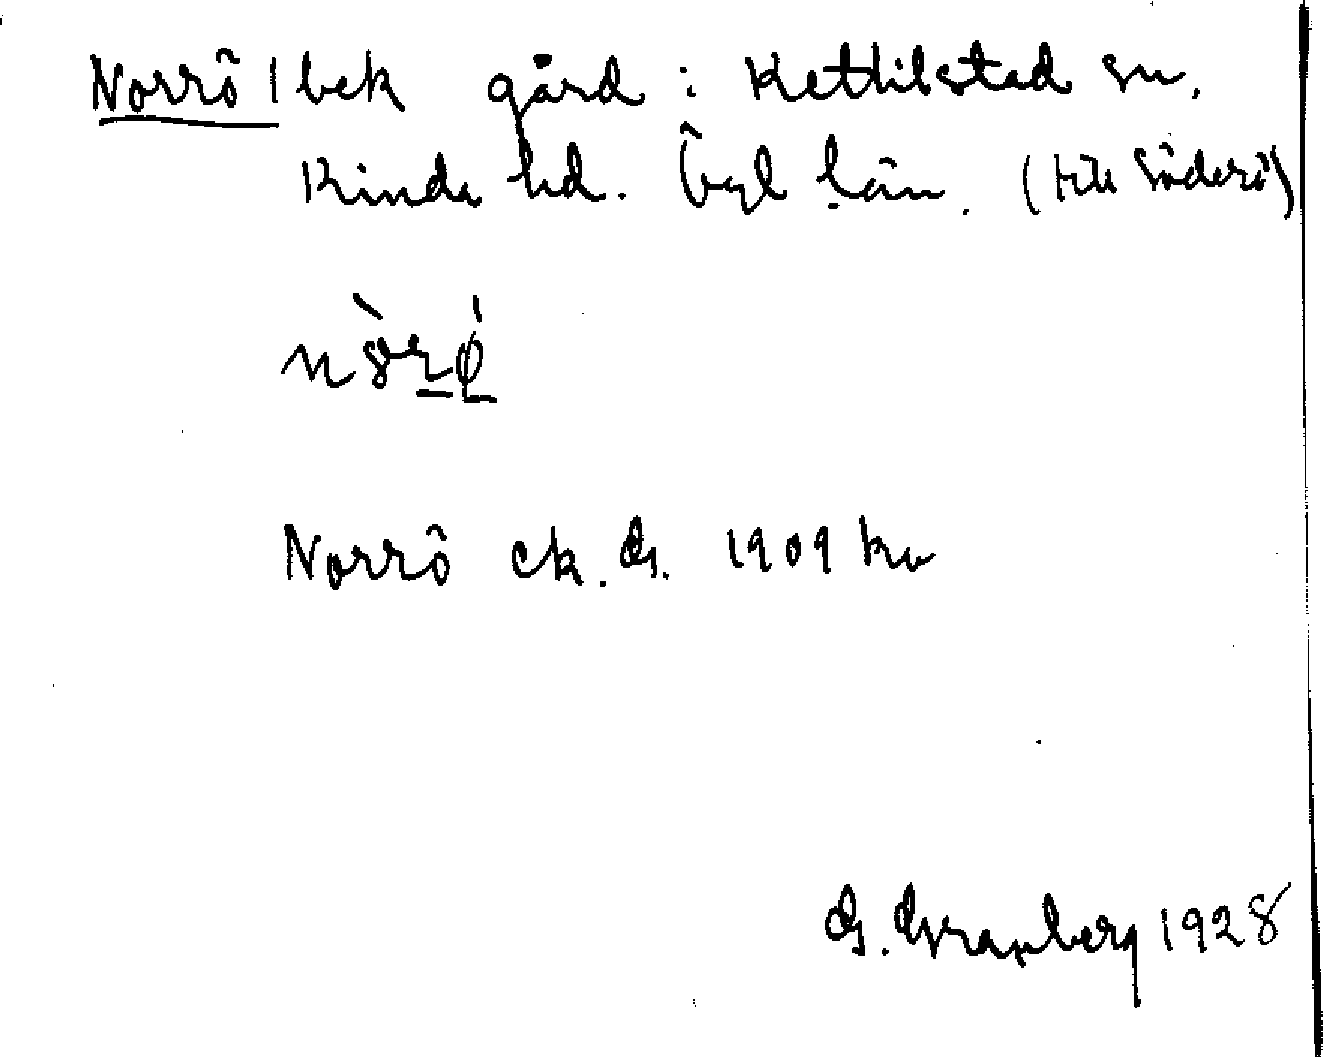 Norrö | bek gård i Kettilstad sn.
Kinda hd. Ögl län. (till Söderö)
Norrö ek. G. 1909 ku
G. Granberg 1928